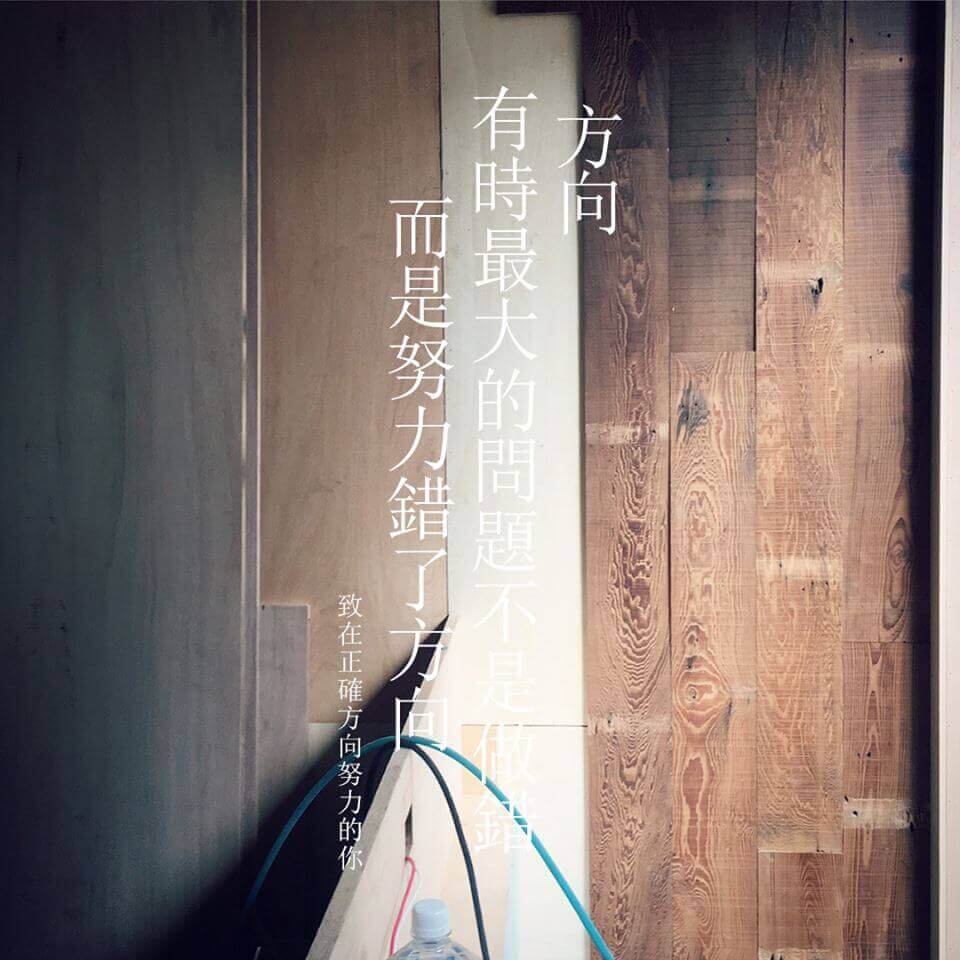 方向
有時最大的問題不是做錯
而是努力錯了方向
致在正確方向努力的你